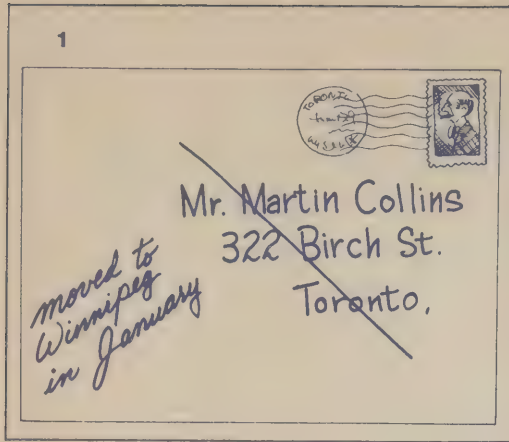 1
TORONTO
Mr. Martin Collins
322 Birch St.
Toronto,
moved to
Winnipeg
in January